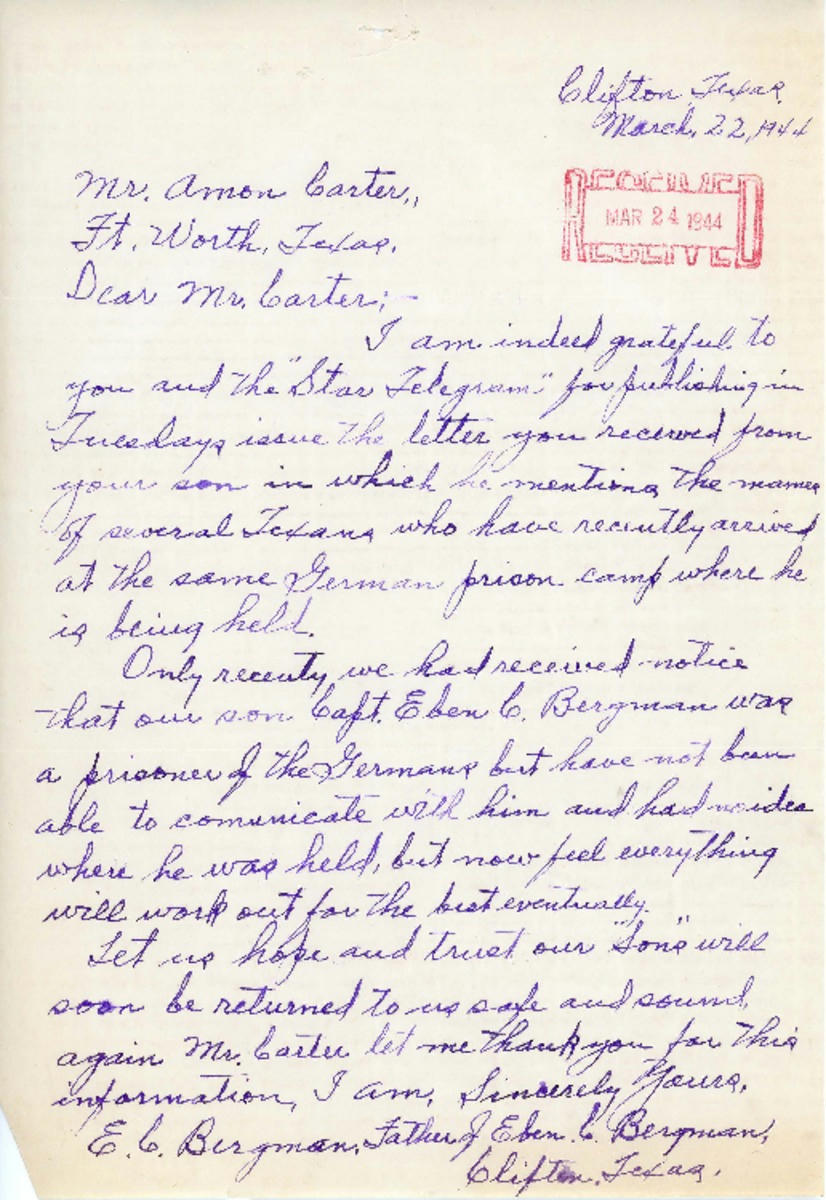 Clifton, Texas.
March. 22, 1944
Mr. Amon Carter.,
Ft. Worth, Texas.
RECEIVED
MAR 24 1944
RECEIVED
Dear Mr. Carter; -
I am indeed grateful to
you and the "Star Telegram" for publishing in
Tuesdays issue the letter you received from
your son in which he mentions the names
of several Texans who have recently arrived
at the same German prison camp where he
is being held.
Only recenty we had received notice
that our son Capt. Eben C. Bergman was
a prisoner of the Germans but have not been
able to comunicate with him and had no idea
where he was held, but now feel everything
will work out for the best eventually.
Let us hope and trust our "Sons" will
soon be returned to us safe and sound,
again Mr. Carter let me thank you for this
information, I am, Sincerely Yours,
E. C. Bergman, Father of Eben C. Bergman,
Clifton, Texas.